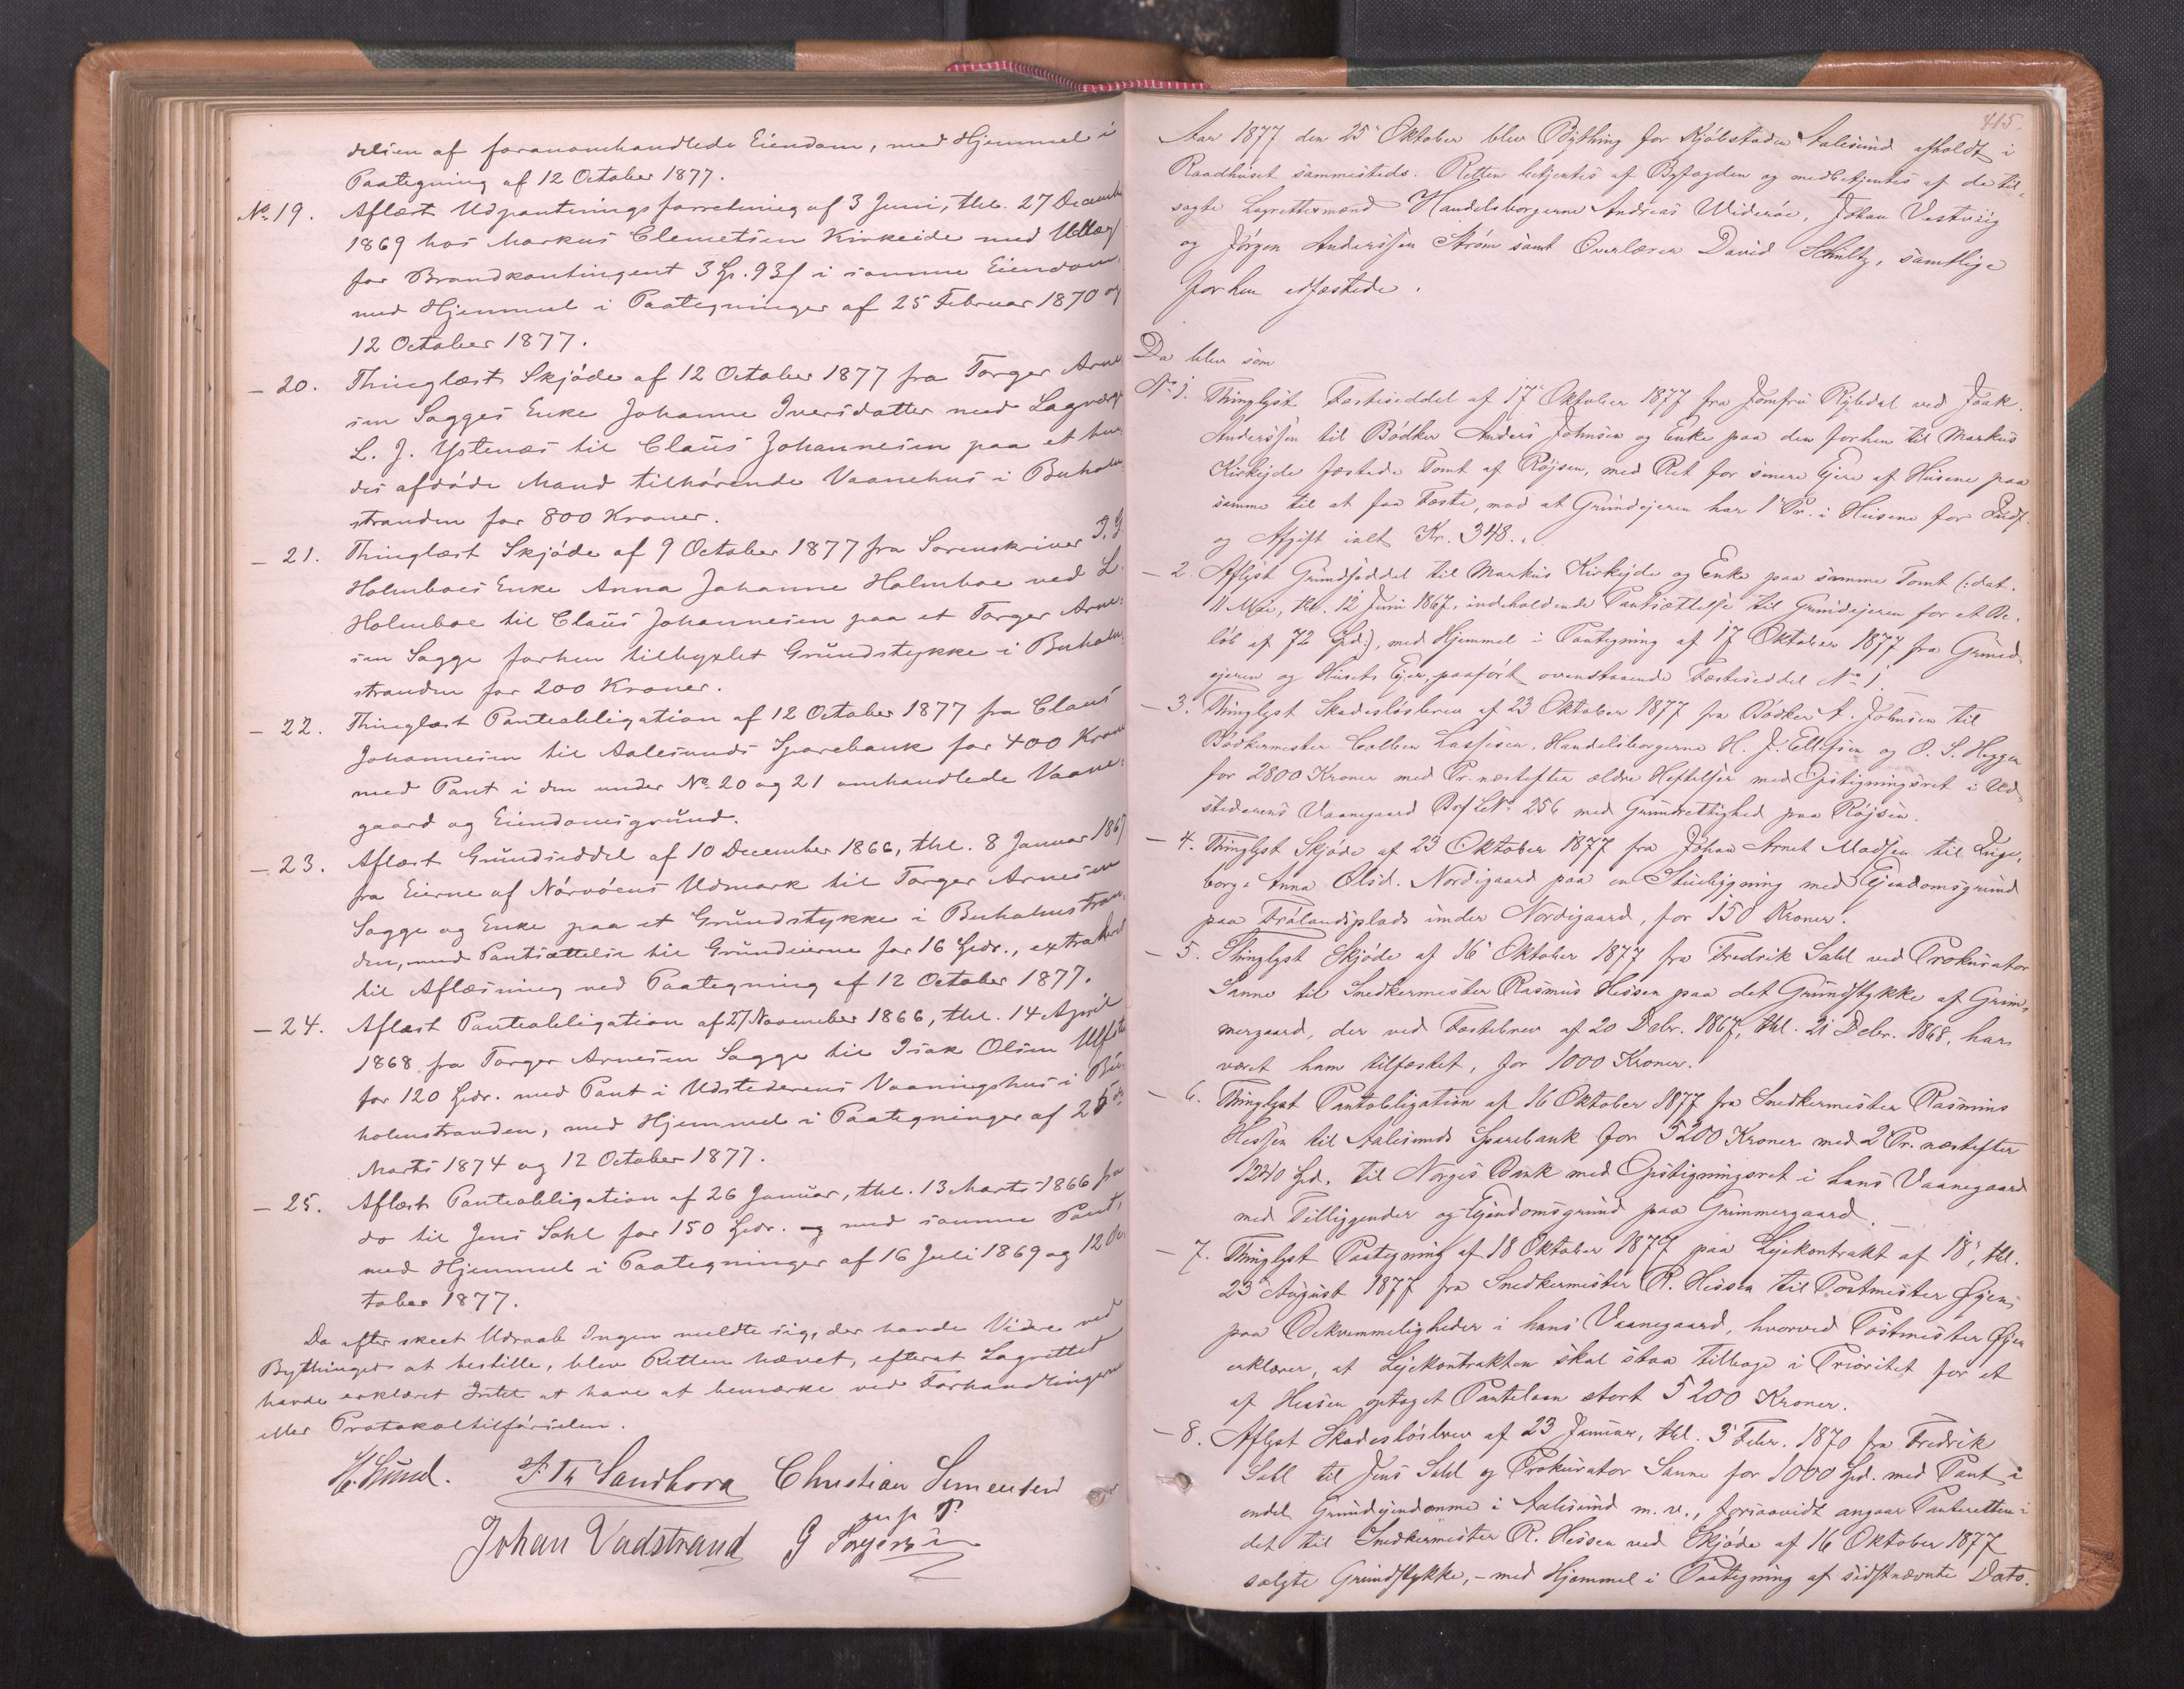 delsen af foranomhandlede Eiendom, med Hjemmel i
Paategning af 12 October 1877.
No 19. Aflæst Udpantningsforretning af 3 Juni, thl. 27 Decembr
1869 hos Markus Clemetsen Kirkeide med Udlæg
for Brandkontingent 3 Sp. 93 s i samme Eiendom,
med Hjemmel i Paategninger af 25 Februar 1870 og
12 October 1877.
- 20. Thinglæst Skjøde af 12 October 1877 fra Torger Arne
sen Sagges Enke Johanne Iversdatter med Lagværge
L. J. Ystenæs til Claus Johannesen paa et hen
des afdøde Mand tilhørende Vaanehus i Buholm
stranden for 800 Kroner.
- 21. Thinglæst Skjøde af 9 October 1877 fra Sorenskriver
Holmboes Enke Anna Johanne Holmboe ved L.
Holmboe til Claus Johannesen paa et Torger Arne-
sen Sagge forhen tilbyxlet Grundstykke i Buholm
stranden for 200 Kroner.
- 22. Thinglæst Panteobligation af 12 October 1877 fra Claus
Johannesen til Aalesunds Sparebank for 400 Kroner
med Pant i den under No 20 og 21 omhandlede Vaane-
gaard og Eiendomsgrund.
- 23. Aflæst Grundseddel af 10 December 1866, thl. 8 Januar 1867
fra Eierne af Nørvøens Udmark til Torger Arnesen
Sagge og Enke paa et Grundstykke i Buholmstran-
den, med Pantsættelse til Grundeierne for 16 Spdr.,
til Aflæsning ved Paategning af 12 October 1877.
- 24. Aflæst Panteobligation af 27 November 1866, thl. 14 April
1868 fra Torger Arnesen Sagge til Isak Olsen
for 120 Spdr. med Pant i Udstederens Vaaningshus i Bu-
holmstranden, med Hjemmel i Paategninger af 25de
Marts 1874 og 12 October 1877.
- 25. Aflæst Panteobligation af 26 Januar, thl. 13 Marts 1866 fra
do til Jens Sahl for 150 Spdr. og med samme Pant,
med Hjemmel i Paategninger af 16 Juli 1869 og 12 Oc
tober 1877.
Da efter skeet Udraab Ingen meldte sig, der havde Videre ved
Bythinget at bestille, blev Retten hævet, efterat Lagrettet
havde erklæret Intet at have at bemærke ved Forhandlingerne
eller Protokoltilførselen.
H. Lund. Sandhora Christian Simensen
m p P
Johan Vadstrand
415.
Aar 1877 den 25' Oktober blev Bything for Kjøbstaden Aalesund afholdt i
Raadhuset sammesteds. Retten betjentes af Byfogden og medbetjentes af de til-
sagte Lagrettesmænd Handelsborgerne Andreas Widerøe, Johan Vestvig
og Jørgen Anderssen Strøm samt Overlærer David Schultz, samtlige
forhen edfæstede.
Da blev som
No 1. Thinglyst Fæsteseddel af 17' Oktober 1877 fra Jomfru Rybdal ved Isak
Anderssen til Bødker Anders Johnsen og Enke paa den forhen til Markus
Kirkejde fæstede Tomt af Røjsen, med Ret for senere Ejere af Husene paa
samme til at faa Fæste, mod at Grundejeren har 1' Pr. i Husene for Indf.
og Afgift ialt Kr. 348..
- 2. Aflyst Grundseddel til Markus Kirkejde og Enke paa samme Tomt (: dat.
11 Mai, thl. 12 Juni 1867, indeholdende Pantsættelse til Grundejeren for et Be-
løb af 72 Spd:), med Hjemmel i Paategning af 17 Oktober 1877 fra Grund-
ejeren og Husets Ejer, paaført ovenstaaende Fæsteseddel No 1.
- 3. Thinglyst Skadesløsbrev af 23 Oktober 1877 fra Bødker A. Johnsen til
Bødkermester Colben Lassesen, Handelsborgerne H. J. Ellefsen og O. S. Heggen
for 2800 Kroner med Pr. næstefter ældre Heftelser med Opstigningsret i Ud-
stederens Vaanegaard Brf LNo 256 med Grundrettighed paa Røjsen.
- 4. Thinglyst Skjøde af 23 Oktober 1877 fra Johan Arnt Madsen til Inge-
borg Anna Olsd. Nordigaard paa en Stuebygning med Ejendomsgrund
paa Frølandsplads under Nordigaard, for 150 Kroner.
- 5. Thinglyst Skjøde af 16' Oktober 1877 fra Fredrik Sahl ved Prokurator
Sanne til Snedkermester Rasmus Hessen paa det Grundstykke af Grim-
mergaard, der ved Fæstebrev af 20 Debr. 1867, thl. 21 Debr. 1868, har
været ham tilfæstet, for 1000 Kroner.
- 6. Thinglyst Panteobligation af 16 Oktober 1877 fra Snedkermester Rasmus
Hessen til Aalesunds Sparebank for 5200 Kroner med 2' Pr. næstefter
1240 Spd. til Norges Bank med Opstigningsret i hans Vaanegaard
med Tilliggender og Ejendomsgrund paa Grimmergaard.
- 7. Thinglyst Paategning af 18 Oktober 1877 paa Lejekontrakt af 18', thl.
23' August 1877 fra Snedkermester R. Hessen til Postmester Øyen
paa Bekvemmeligheder i hans Vaanegaard, hvorved Postmester Øyen
erklærer, at Lejekontrakten skal staa tilbage i Prioritet for et
af Hessen optaget Pantelaan stort 5200 Kroner.
- 8. Aflyst Skadesløsbrev af 23 Januar, thl. 3' Febr. 1870 fra Fredrik
Sahl til Jens Sahl og Prokurator Sanne for 1000 Spd. med Pant i
endel Grundejendomme i Aalesund m. v., forsaavidt angaar Panteretten i
det til Snedkermester R. Hessen ved Skjøde af 16 Oktober 1877
solgte Grundstykke, - med Hjemmel i Paategning af sidstnævnte Dato.